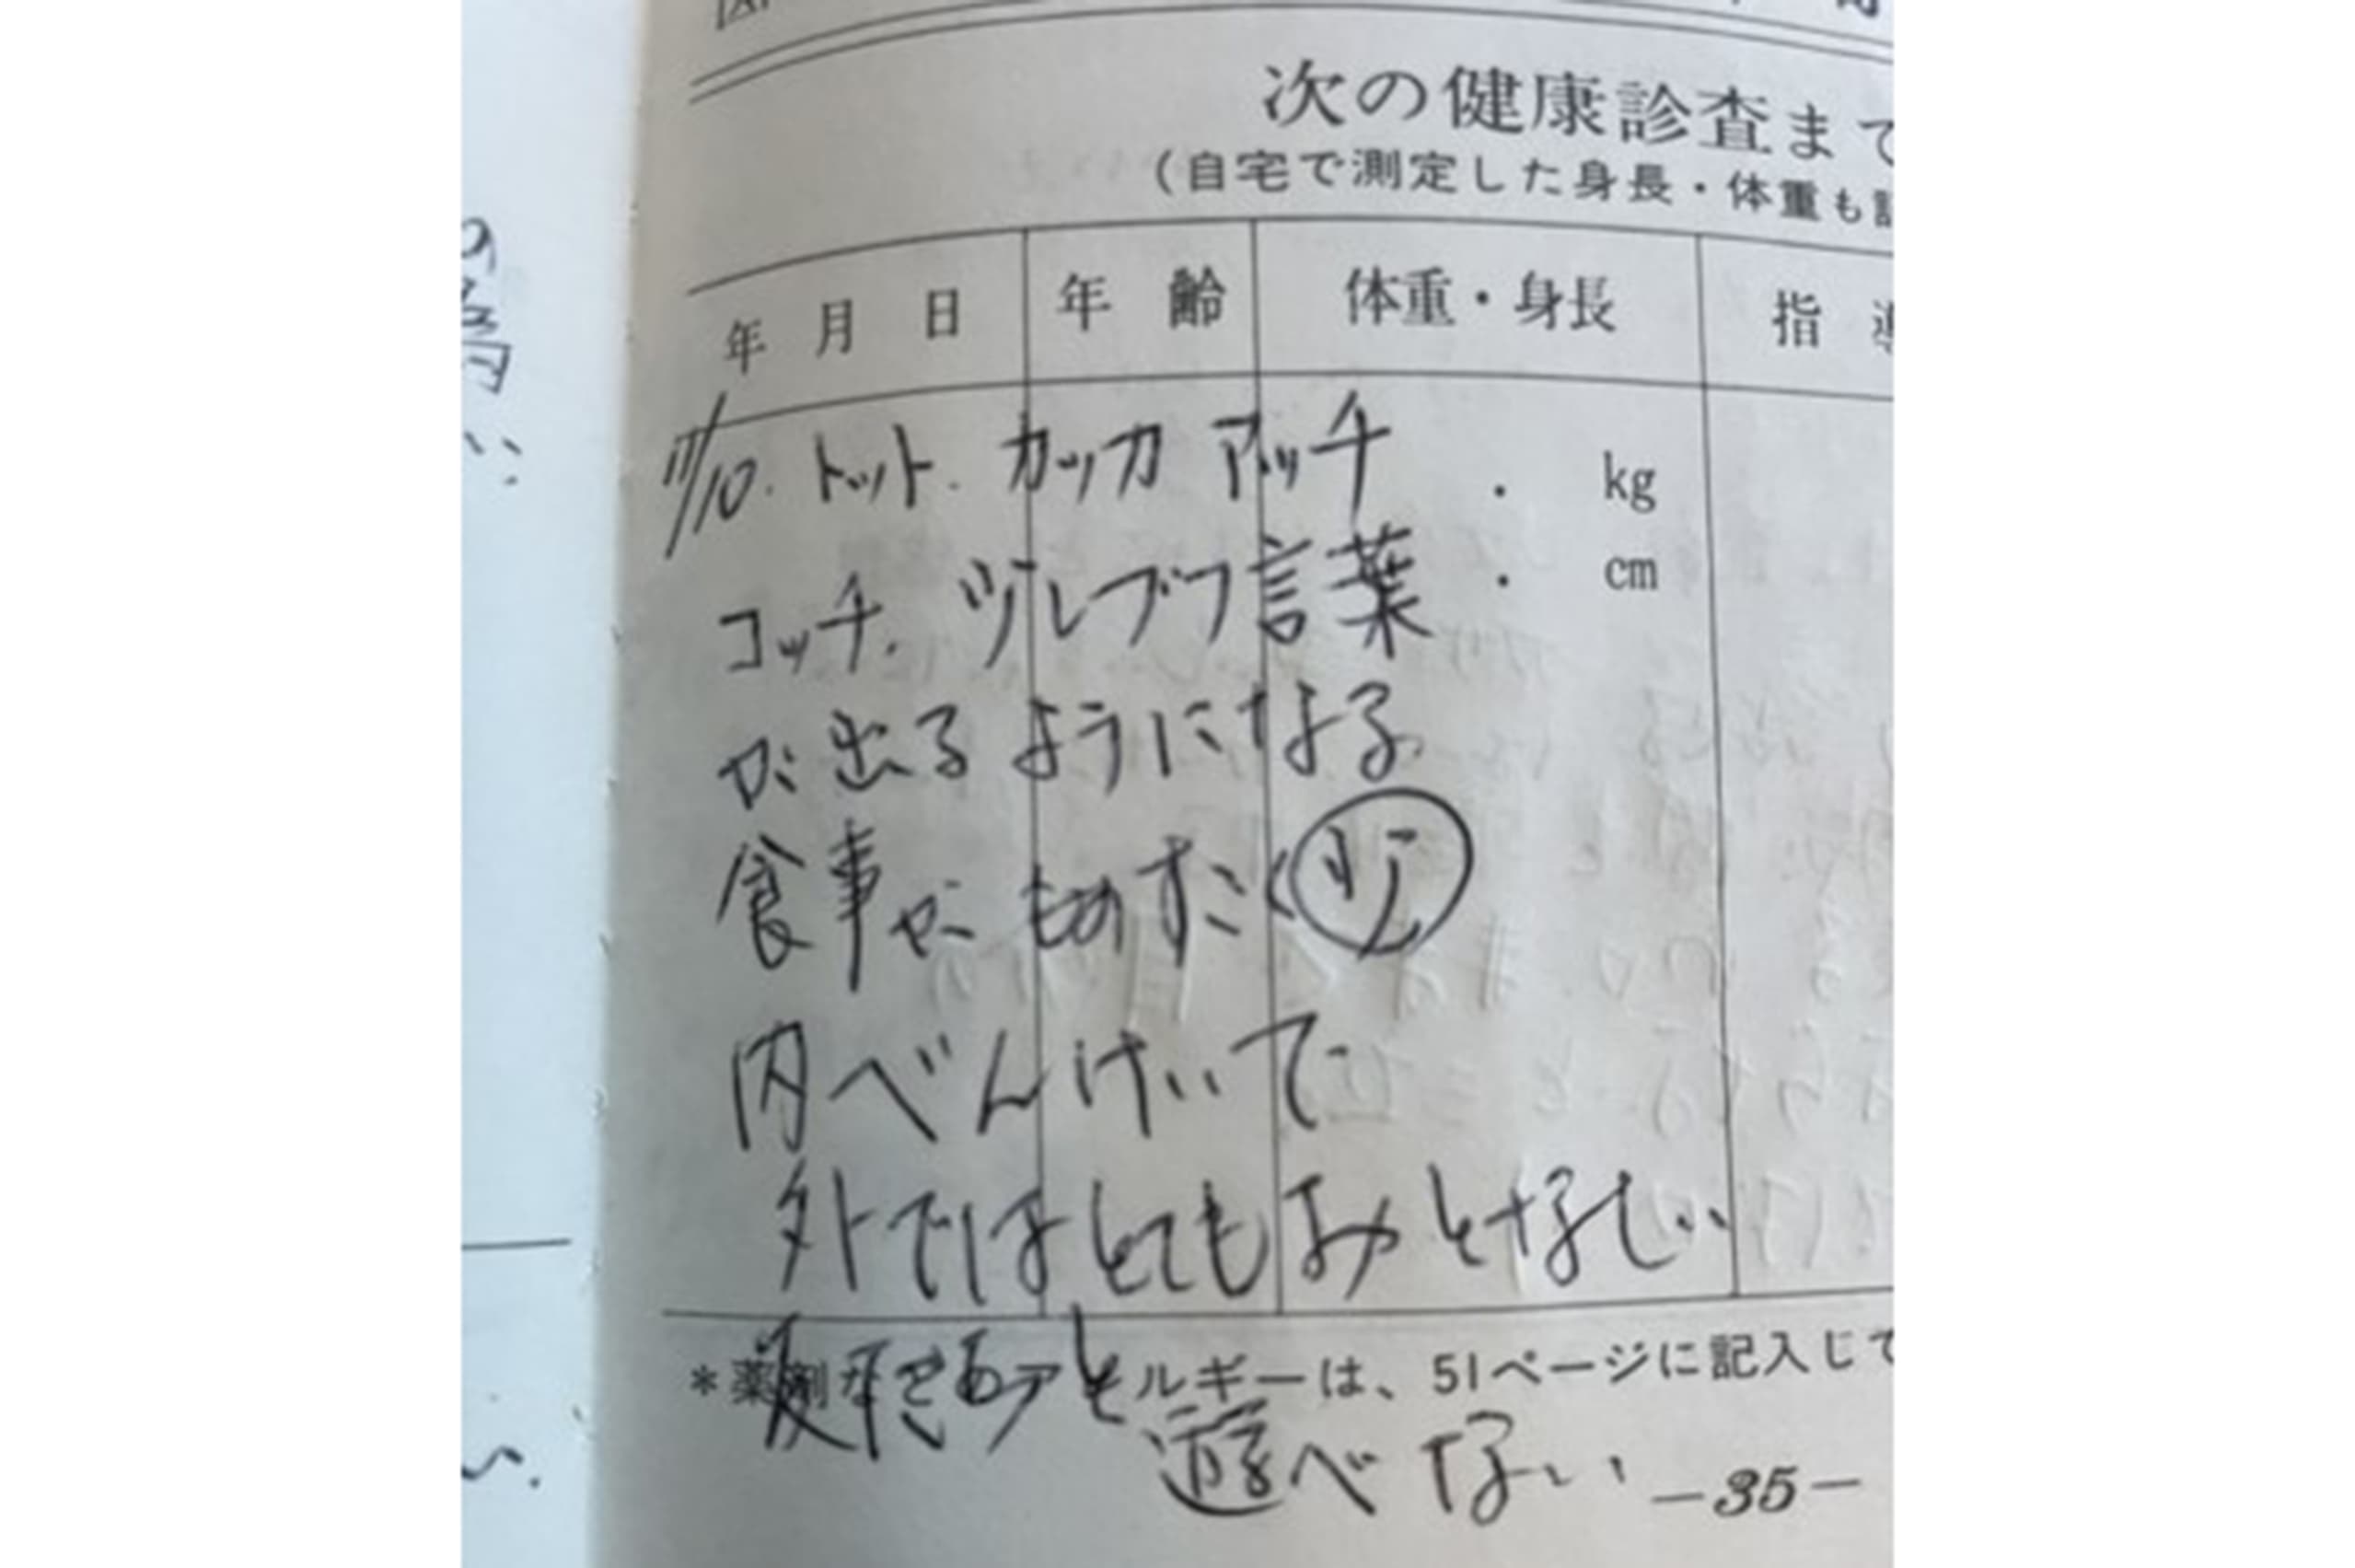 次の健康診査まで
（自宅で測定した身長・体重も記
年月日 年齢 体重・身長 指導
11/10. トット. カッカ アッチ . kg
コッチ. 言葉 . cm
が出るようになる
食事が
内べんけいで
外ではとてもおとなしい
*薬剤 ルギーは、51ページに記入して
遊べない
－35－